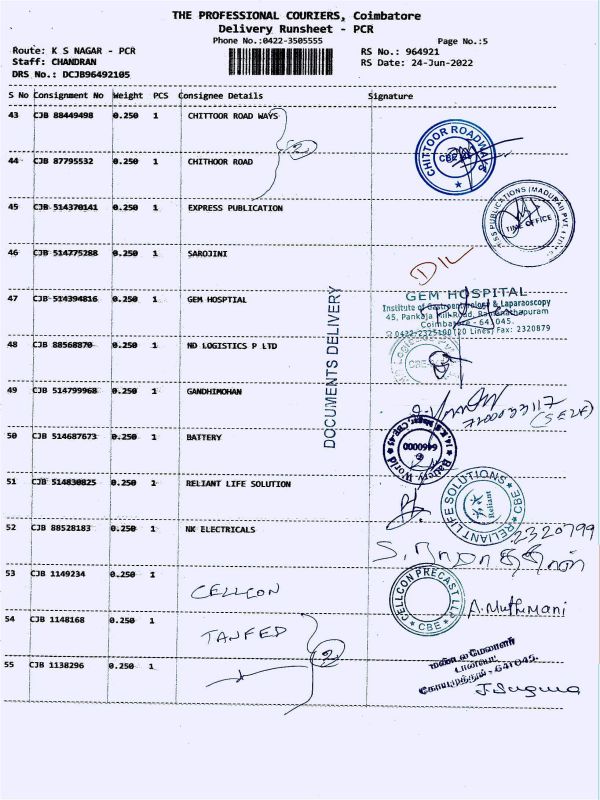 THE PROFESSIONAL COURIERS, Coimbatore
Delivery Runsheet - PCR
Phone No.:0422-3505555
Page No.:5
Route: K S NAGAR - PCR
RS No.: 964921
Staff: CHANDRAN
RS Date: 24-Jun-2022
DRS No.: DCJB96492105
S No Consignment No Weight PCS Consignee Details Signature
43 CJB 88449498 0.250 1 CHITTOOR ROAD WAYS
2
CHITTOOR ROADWAYS
CBE
44 CJB 87795532 0.250 1 CHITHOOR ROAD
45 CJB 514370141 0.250 1 EXPRESS PUBLICATION
PUBLICATIONS (MADURAI) PVT. LTD
TIME OFFICE
46 CJB 514775288 0.250 1 SAROJINI
DIL
47 CJB 514394816 0.250 1 GEM HOSPTIAL
GEM HOSPITAL
Institute of Gastroenterology & Laparaoscopy
45, Pankaja Mill Road, Ramanathapuram
Coimbatore - 641045.
0422-2325100(20 Lines) Fax: 2320879
DOCUMENTS DELIVERY
48 CJB 88568870 0.250 1 ND LOGISTICS P LTD
49 CJB 514799968 0.250 1 GANDHIMOHAN
(SELF)
50 CJB 514687673 0.250 1 BATTERY
Battery World
6460000
51 CJB 514830825 0.250 1 RELIANT LIFE SOLUTION
RELIANT LIFE SOLUTIONS
Reliant
CBE
52 CJB 88528183 0.250 1 NK ELECTRICALS
2320799
53 CJB 1149234 0.250 1 CELLCON
CELLCON PRECAST LLP
CBE
A.Muthmani
54 CJB 1148168 0.250 1 TANFED
2
55 CJB 1138296 0.250 1
மண்டல மேலாளர்
டான்பெட்
கோயமுத்தூர் - 641045.
J. Suguna